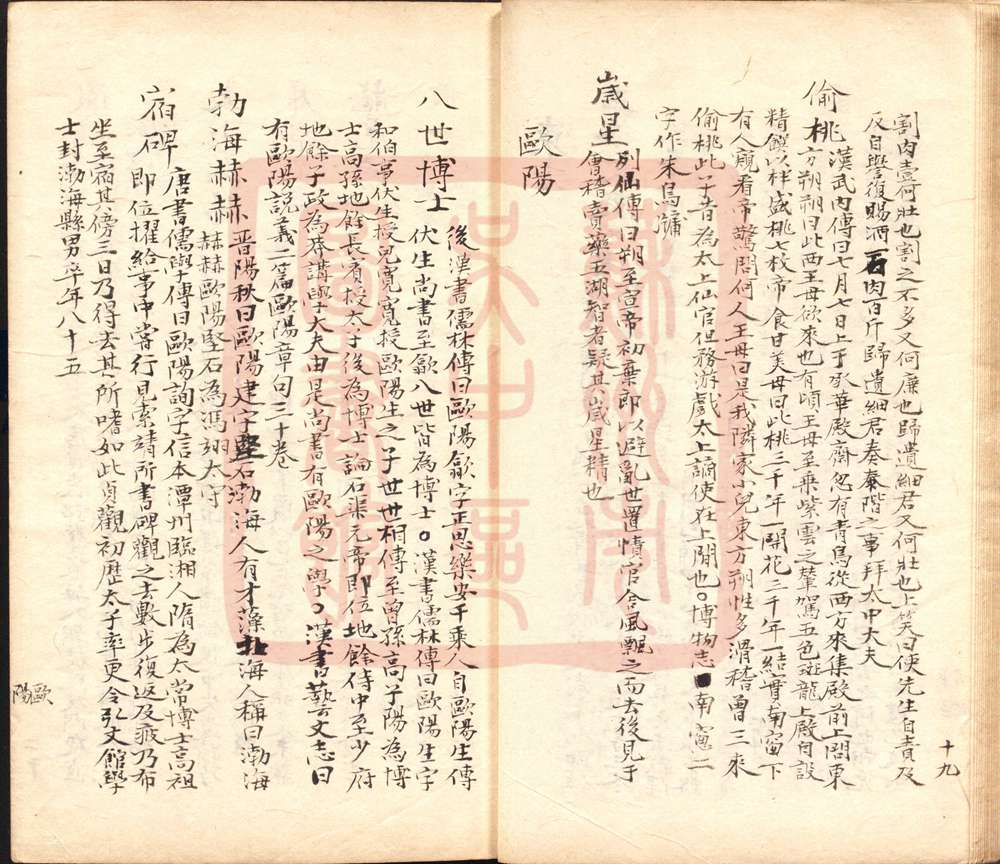 割肉壹何壯也割之不多又何廉也歸遺細君又何壯也上笑曰使先生自責及
反自譽復賜酒百肉百斤歸遺細君奏泰階之事拜太中大夫
偷桃漢武內傳曰七月七日上于承華殿齋忽有青鳥從西方來集殿前上問東
方朔朔曰此西王母欲來也有頃王母至乘紫雲之輦駕五色斑龍上殿自設
精饌以柈盛桃七枚帝食甘美母曰此桃三千年一開花二千年一結實南窗下
有人窺看帝驚問何人王母曰是我隣家小兒東方朔性多滑稽曾三來
偷桃此子昔為太上仙官但務游戲太上謫使在上間也〇博物志南窗二
字作朱鳥牖
歲星列仙傳曰朔至宣帝初棄郎以避亂世置幘官舍風飄之而去後見于
會稽賣藥五湖智者疑其歲星精也
歐陽
八世博士後漢書儒林傳曰歐陽歙字正思樂安千乘人自歐陽生傳
伏生尚書至歙八世皆為博士〇漢書儒林傳曰歐陽生字
和伯事伏生授兒寬寬授歐陽生之子世世相傳至曾孫高子陽為博
士高孫地餘長賓授太子後為博士論石渠元帝即位地餘侍中至少府
地餘子政為莽講學大夫由是尚書有歐陽之學〇漢書藝文志曰
有歐陽說義二篇歐陽章句三十卷
勃海赫赫晋陽秋曰歐陽建字堅石渤海人有才藻北海人稱曰渤海
赫赫歐陽堅石為馮翊太守
宿碑唐書儒學傳曰歐陽詢字信本潭州臨湘人隋為太常博士高祖
即位擢給事中嘗行見索靖所書碑觀之去數步復返及疲乃布
坐至宿其傍三日乃得去其所嗜如此貞觀初歷太子率更令弘文館學
士封渤海縣男卒年八十五
十九
歐陽